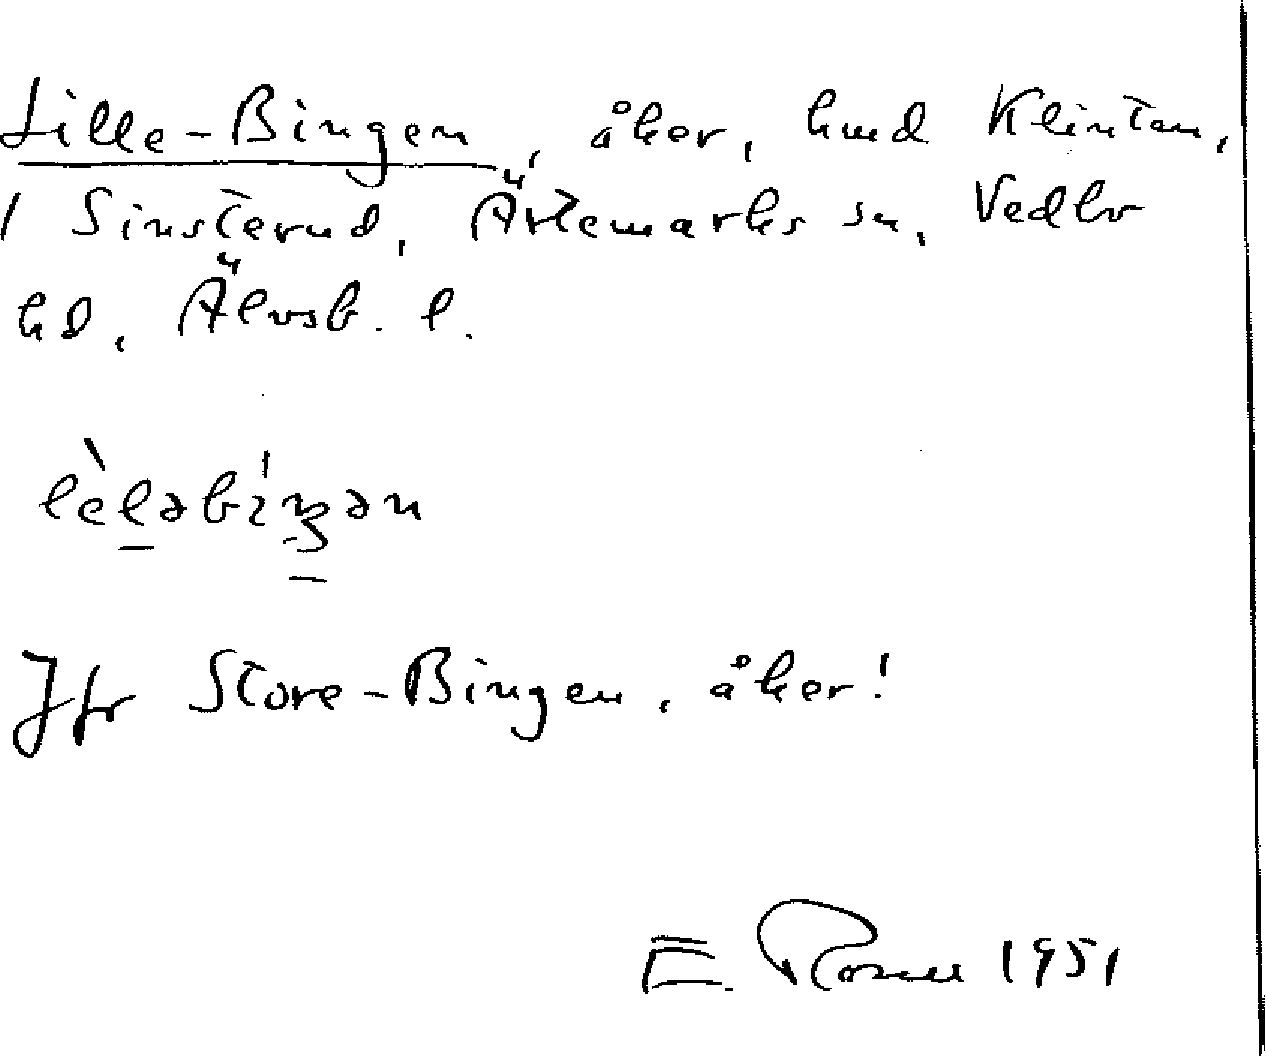 Lille-Bingen, åker, hmd Klinten,
1 Sinsterud, Ärtemarks sn, Vedbo
hd, Älvsb. l.
lèləbíŋən
Jfr Store-Bingen, åker!
E. Rosell 1951